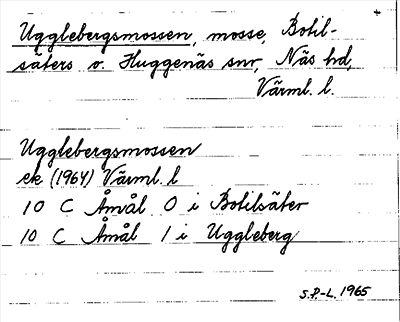 Ugglebergsmossen, mosse, Botil-
säters o. Huggenäs snr, Näs hd,
Värml. l.
Ugglebergsmossen
ek (1964) Värml. l
10 C Åmål 0 i Botilsäter
10 C Åmål 1 i Uggleberg
S.P.-L. 1965